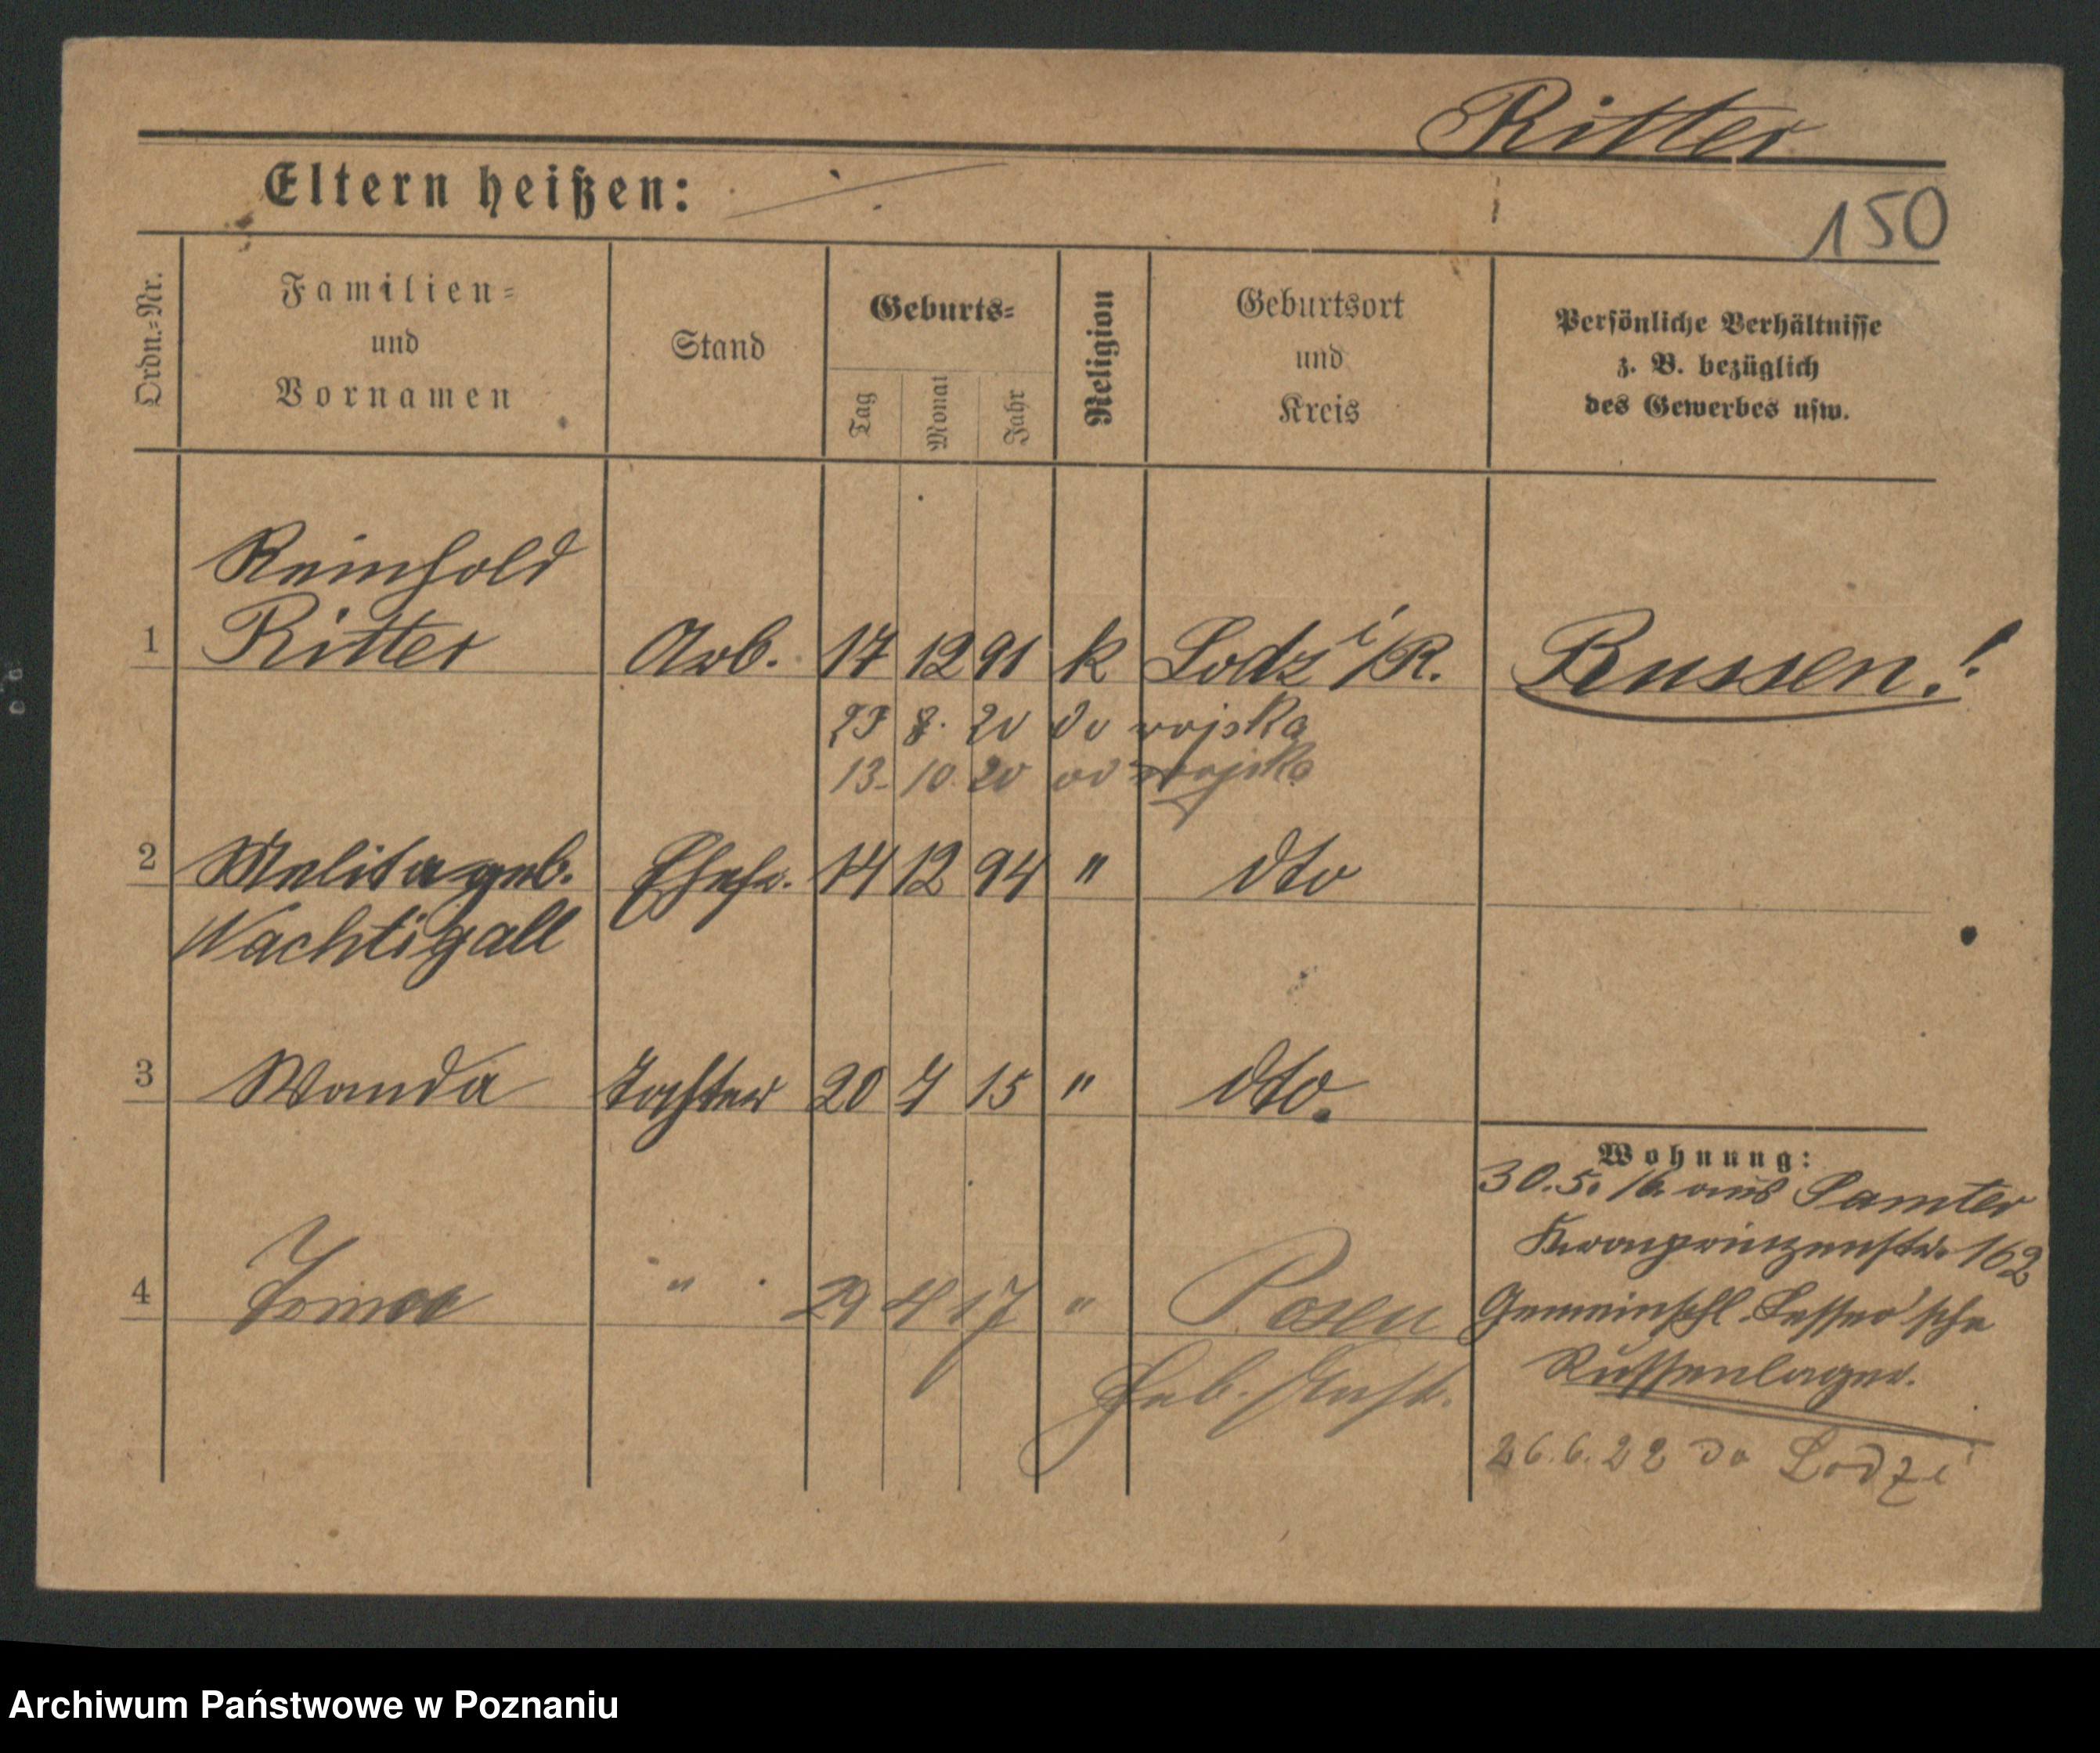 Ritter
Eltern heißen:
150
Ordn.-Nr.
Familien-
und
Vornamen
Stand
Geburts-
Tag
Monat
Jahr
Religion
Geburtsort
und
Kreis
Persönliche Verhältnisse
z. B. bezüglich
des Gewerbes usw.
Reinhold
1 Ritter Arb. 17 12 91 k Lodz i/R. Russen!
8. 20 do wojska
13. 10. 20 od wojska
2 Melita geb. Ehefr. 14 12 94 " dto
Nachtigall
3 Wanda Tochter 20 7 15 " dto.
Wohnung:
30.5.16 aus Samter
Kronprinzenstr. 102
4 Irma " 29 4 17 " Posen
Gemeinschl. Lesser'sche
Russenlager.
Heb. Anst.
26.6.22 do Lodzi
Archiwum Państwowe w Poznaniu